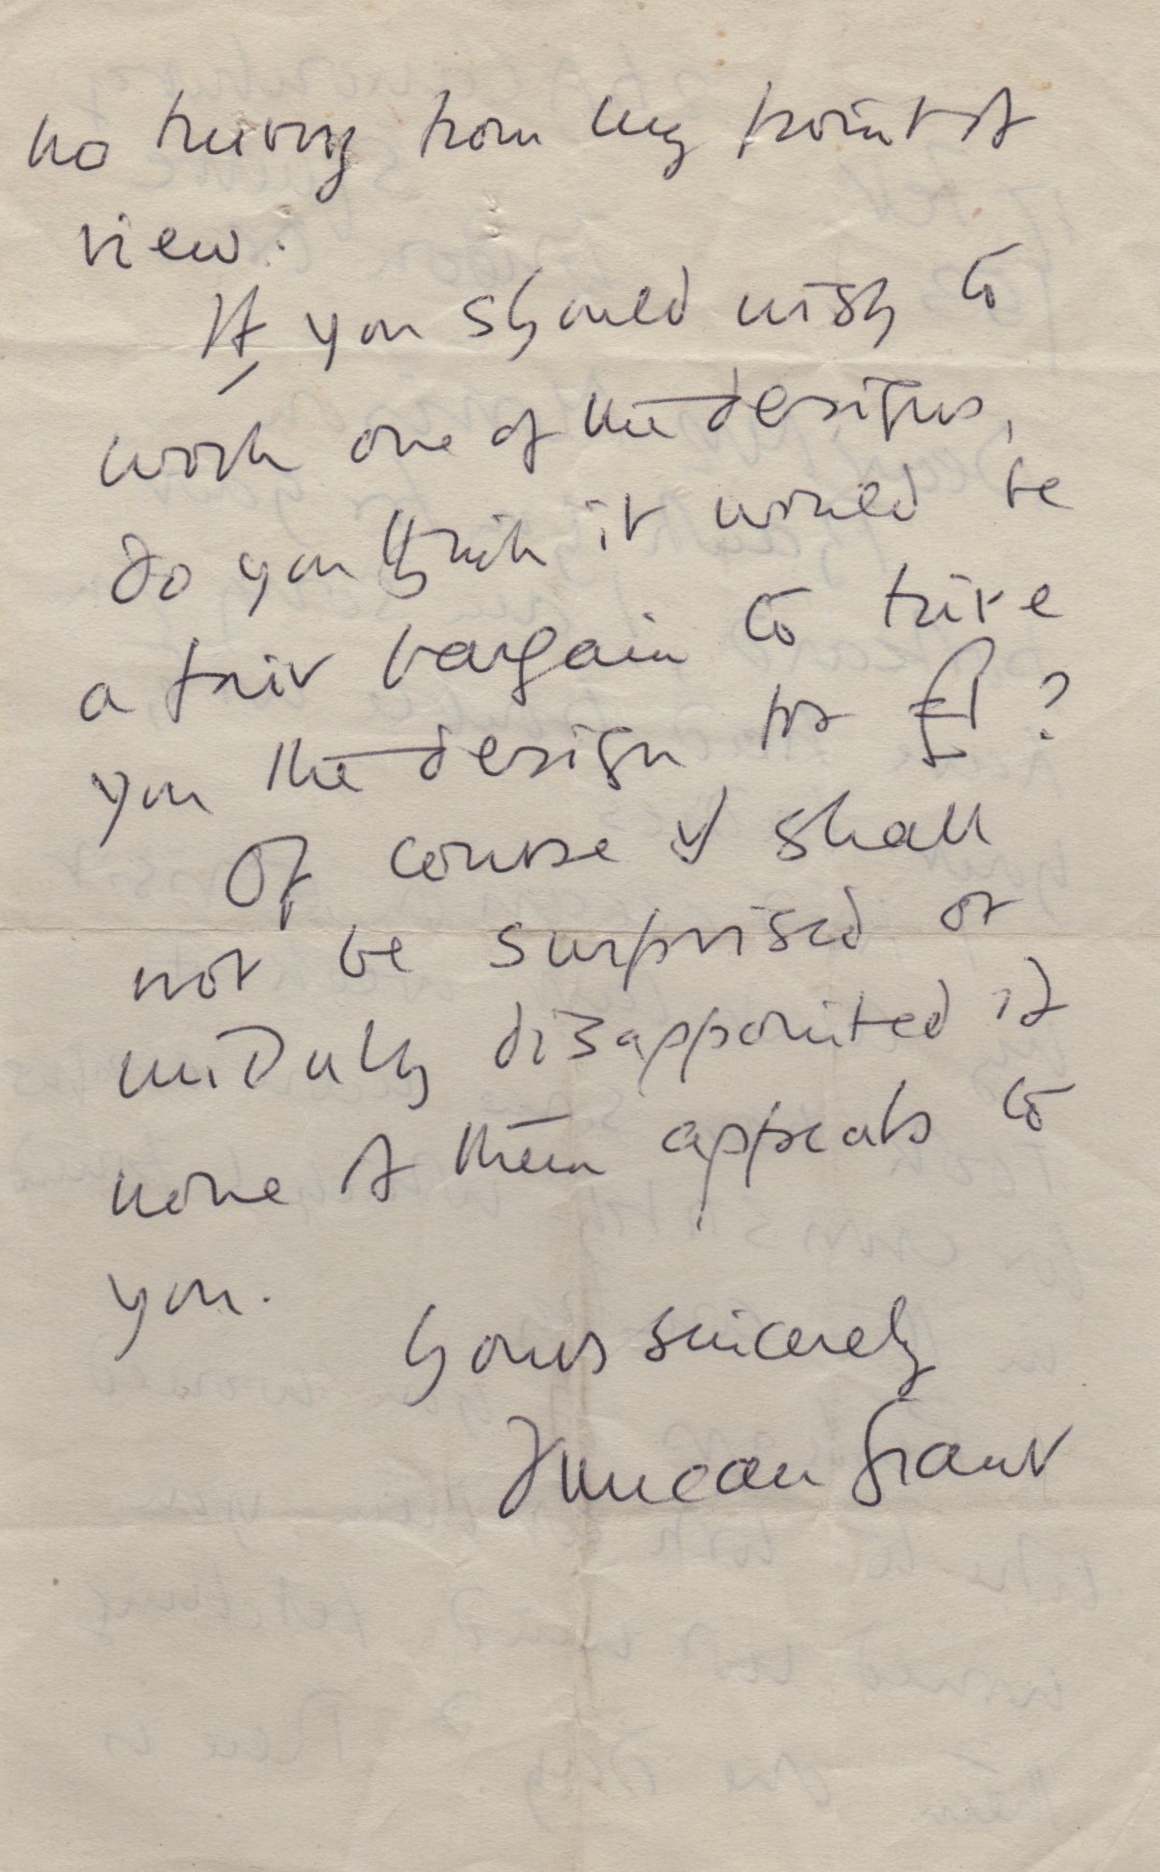 no hurry from my point of
view.
If you should wish to
work one of the designs,
do you think it would be
a fair bargain to give
you the design for £1?
Of course I shall
not be surprised or
unduly disappointed if
none of them appeals to
you.
Yours sincerely
Duncan Grant